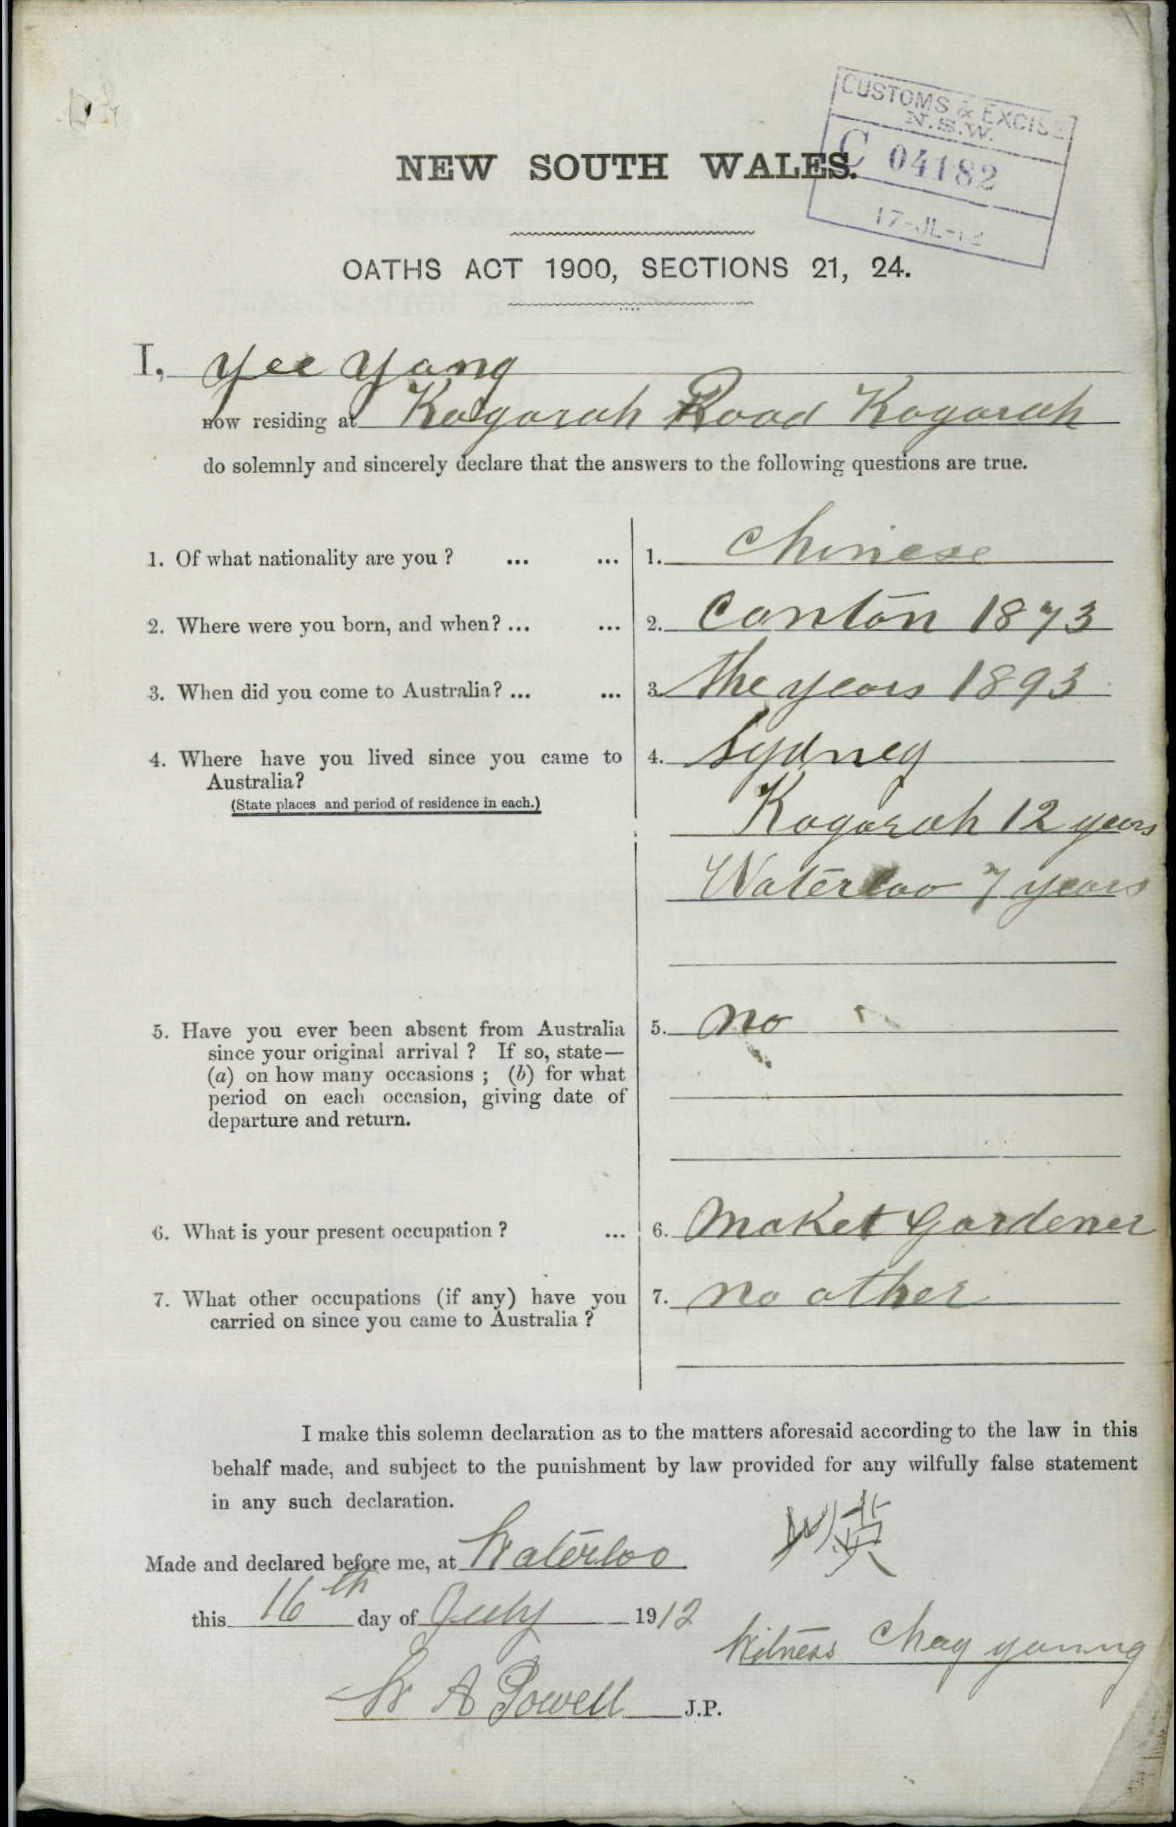 CUSTOMS & EXCISE
N.S.W.
C 04182
17-JL-12
NEW SOUTH WALES.
OATHS ACT 1900, SECTIONS 21, 24.
I, Yee Yang
now residing at Kogarah Road Kogarah
do solemnly and sincerely declare that the answers to the following questions are true.
1. Of what nationality are you ? ... ... 1. Chinese
2. Where were you born, and when? ... ... 2. Canton 1873
3. When did you come to Australia? ... ... 3. the years 1893
4. Where have you lived since you came to 4. Sydney
Australia?
(State places and period of residence in each.)
Kogarah 12 years
Waterloo 7 years
5. Have you ever been absent from Australia 5. no
since your original arrival ? If so, state—
(a) on how many occasions ; (b) for what
period on each occasion, giving date of
departure and return.
6. What is your present occupation ? ... 6. Maket Gardener
7. What other occupations (if any) have you 7. no other
carried on since you came to Australia ?
I make this solemn declaration as to the matters aforesaid according to the law in this
behalf made, and subject to the punishment by law provided for any wilfully false statement
in any such declaration.
Made and declared before me, at Waterloo
this 16th day of July 1912
Witness Chay young
W A Powell J.P.